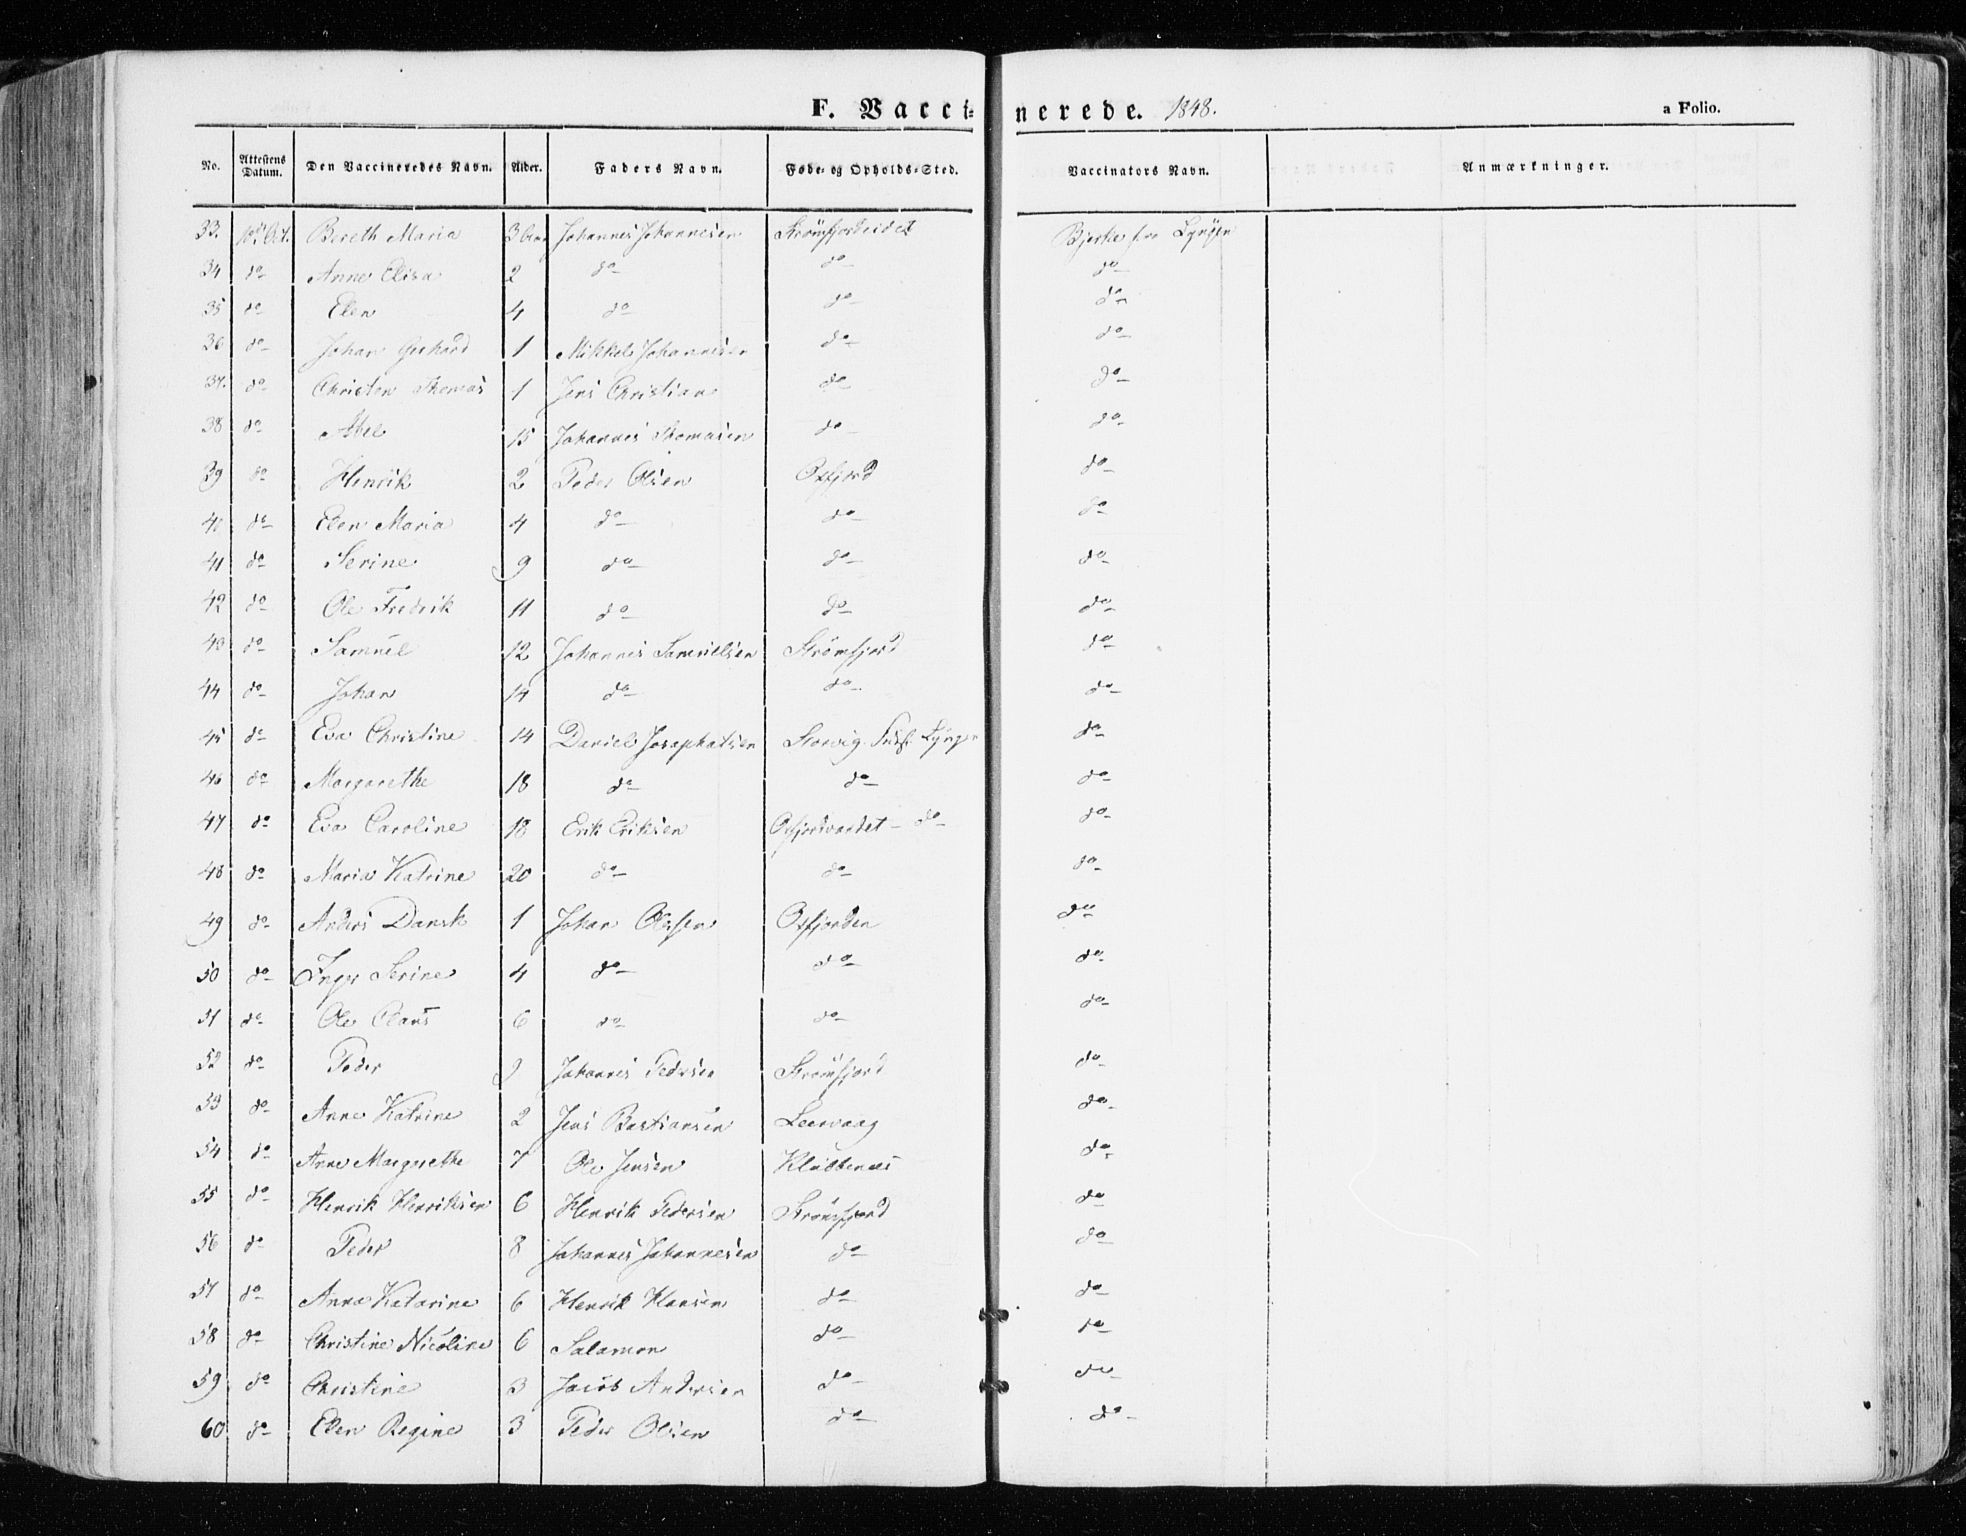 F. Vaccinerede. 1848. a Folio.
No. Attestens Datum. Den Vaccineredes Navn. Alder. Faders Navn. Føde- og Opholds-Sted. Vaccinators Navn. Anmærkninger.
33. Oct. Bereth Maria 3 Johannes Johannesen Strømfjordeidet Bjerke fra Lyngen
34 do Anne Elisa 2 do do do
35 do Elen 4 do do do
36 do Johan Gerhard 1 Mikkel Johannesen do do
37. do Christen Thomas 1 Jens Christian do do
38 do Abel 15 Johannes Thomasen do do
39 do Henrik 2 Peder Olsen Oxfjord do
40 do Elen Maria 4 do do do
41 do Serine 9 do do do
42 do Ole Fredrik 11 do do do
43 do Samuel 12 Johannes Samuelsen Strømfjord do
44 do Johan 14 do do do
45 do Eva Christine 14 Daniel Josephatsen Storvig Lyngen do
46 do Margarethe 18 do do do
47 do Eva Caroline 18 Erik Eriksen do do
48 do Maria Katrine 20 do do do
49 do Anders Dansk 1 Johan Olsen Oxfjorden do
50 do Inger Serine 4 do do do
51 do Ole Claus 6 do do do
52 do Peder 9 Johannes Pedersen Strømfjord do
53 do Anne Katrine 2 Jens Bastiansen Leervaag do
54 do Anne Margrethe 7 Ole Jensen Klubbenes do
55 do Henrik Henriksen 6 Henrik Pedersen Strømfjord do
56 do Peder 8 Johannes Johannesen do do
57 do Anna Katarine 6 Henrik Hansen do do
58 do Christine Nicoline 6 Salamon do do
59 do Christine 3 Jacob Andersen do do
60 do Elen Regine 3 Peder Olsen do do